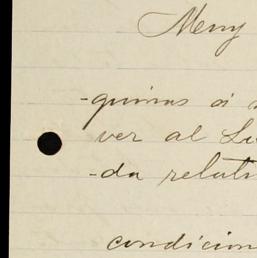 Meny
-quinas ó
ver al
-da relati
condicion